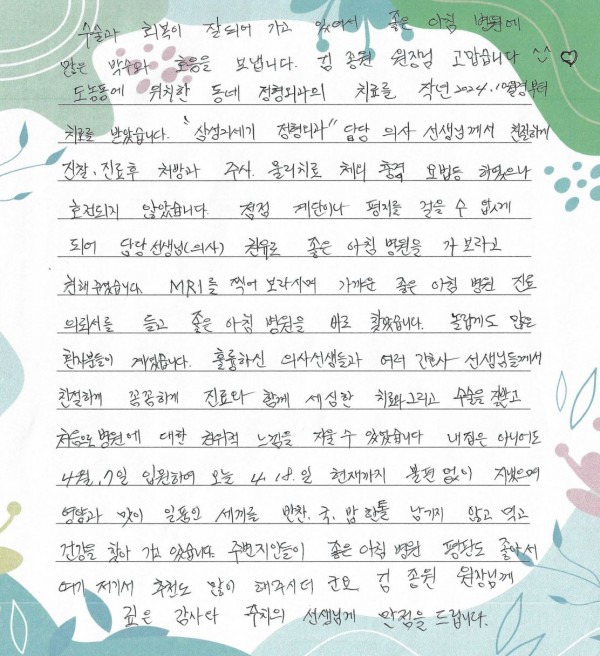 수술과 회복이 잘되어 가고 있어서 좋은 아침 병원에
많은 박수와 호응을 보냅니다. 김 종원 원장님 고맙습니다 ^^ ♡
도농동에 위치한 동네 정형외과의 치료를 작년 2024.10월경부터
치료를 받았습니다. "삼성과세기 정형외과" 담당 의사 선생님께서 친절하게
진찰, 진료후 처방과 주사. 물리치료 체외 충격 요법등 하였으나
호전되지 않았습니다. 점점 계단이나 평지를 걸을 수 없게
되어 담당선생님(의사) 권유로 좋은 아침 병원을 가 보라고
권해 주셨습니다. MRI를 찍어 보라시며 가까운 좋은 아침 병원 진료
의뢰서를 들고 좋은 아침 병원을 바로 찾았습니다. 놀랍게도 많은
환자분들이 계셨습니다. 훌륭하신 의사선생들과 여러 간호사 선생님들께서
친절하게 꼼꼼하게 진료와 함께 세심한 치료와그리고 수술을 받고
처음으로 병원에 대한 권위적 느낌을 지울 수 있었습니다 내집은 아니어도
4월, 7일 입원하여 오늘 4. 18. 일 현재까지 불편 없이 지냈으며
영양과 맛이 일품인 세끼를 반찬, 국, 밥 한톨 남기지 않고 먹고
건강을 찾아 가고 있습니다. 주변지인들이 좋은 아침 병원 평판도 좋아서
여기 저기서 추천도 많이 해주시더 군요. 김 종원 원장님께
깊은 감사와 주치의 선생님께 만점을 드립니다.